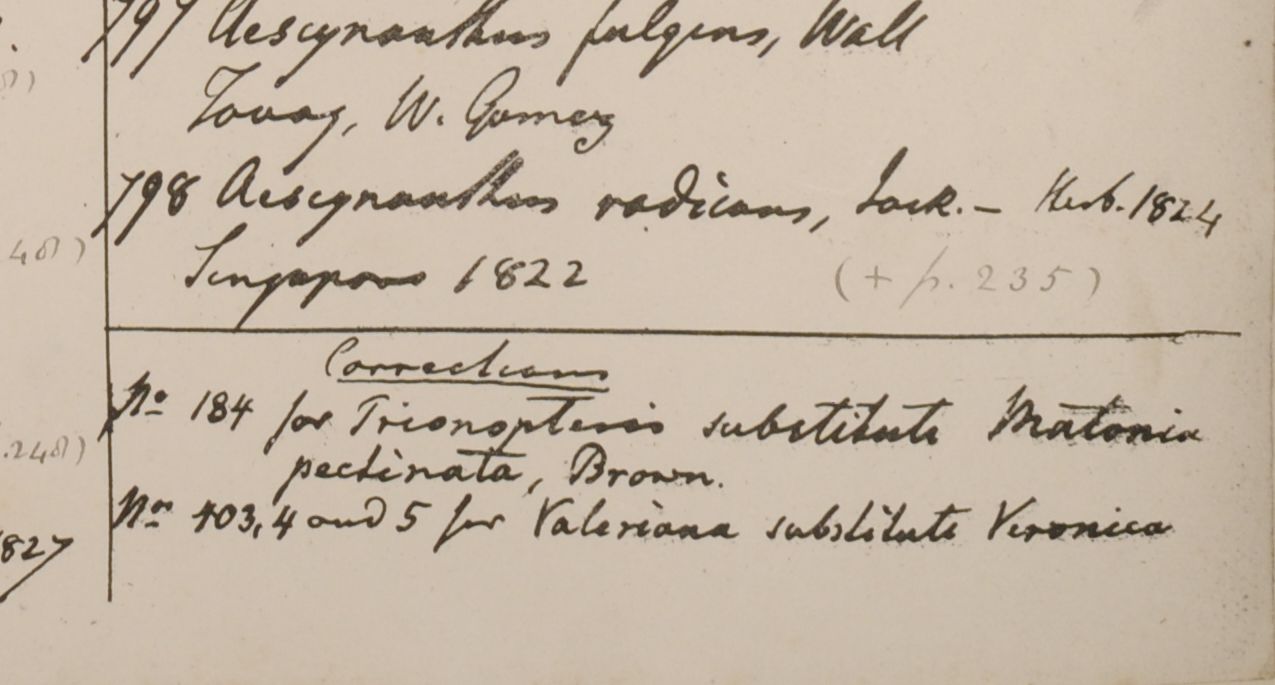 797 Aescynanthus fulgens, Wall
Tovoy, W. Gomez
798 Aescynanthus radicans, Jack. – Herb. 1824
Singapore 1822 (+ p. 235)
248)
Corrections
No 184 for Trionopteris substitute Matonia
pectinata, Brown.
Nos 403, 4 and 5 for Valeriana substitute Veronica
827